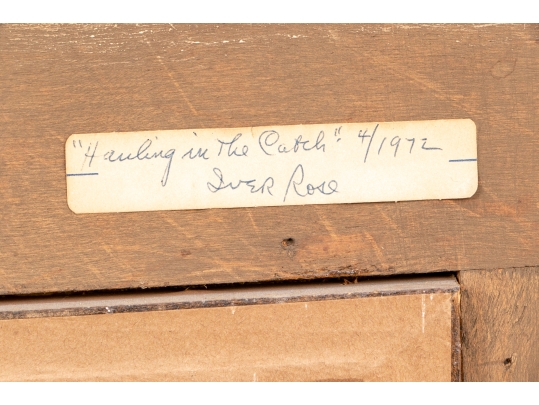 "Hauling in The Catch". 4/1972
Iver Rose